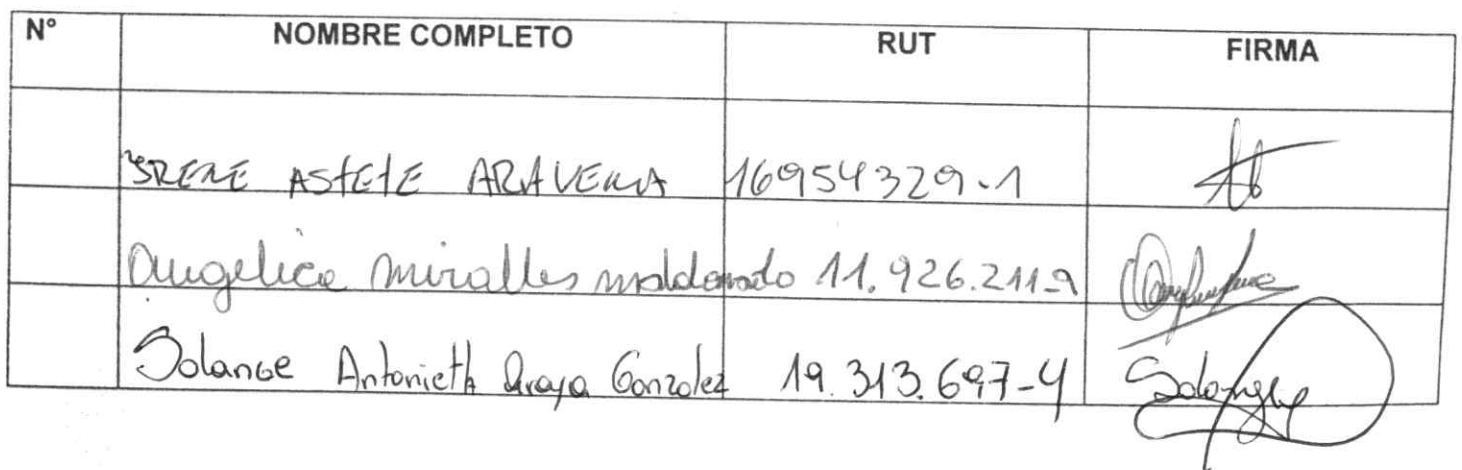 N° NOMBRE COMPLETO RUT FIRMA
IRENE ASTETE ARAVENA 16954329-1
Angelica Miralles Maldonado 11.926.211-9
Solange Antonieth Araya Gonzalez 19.313.697-4 Solange